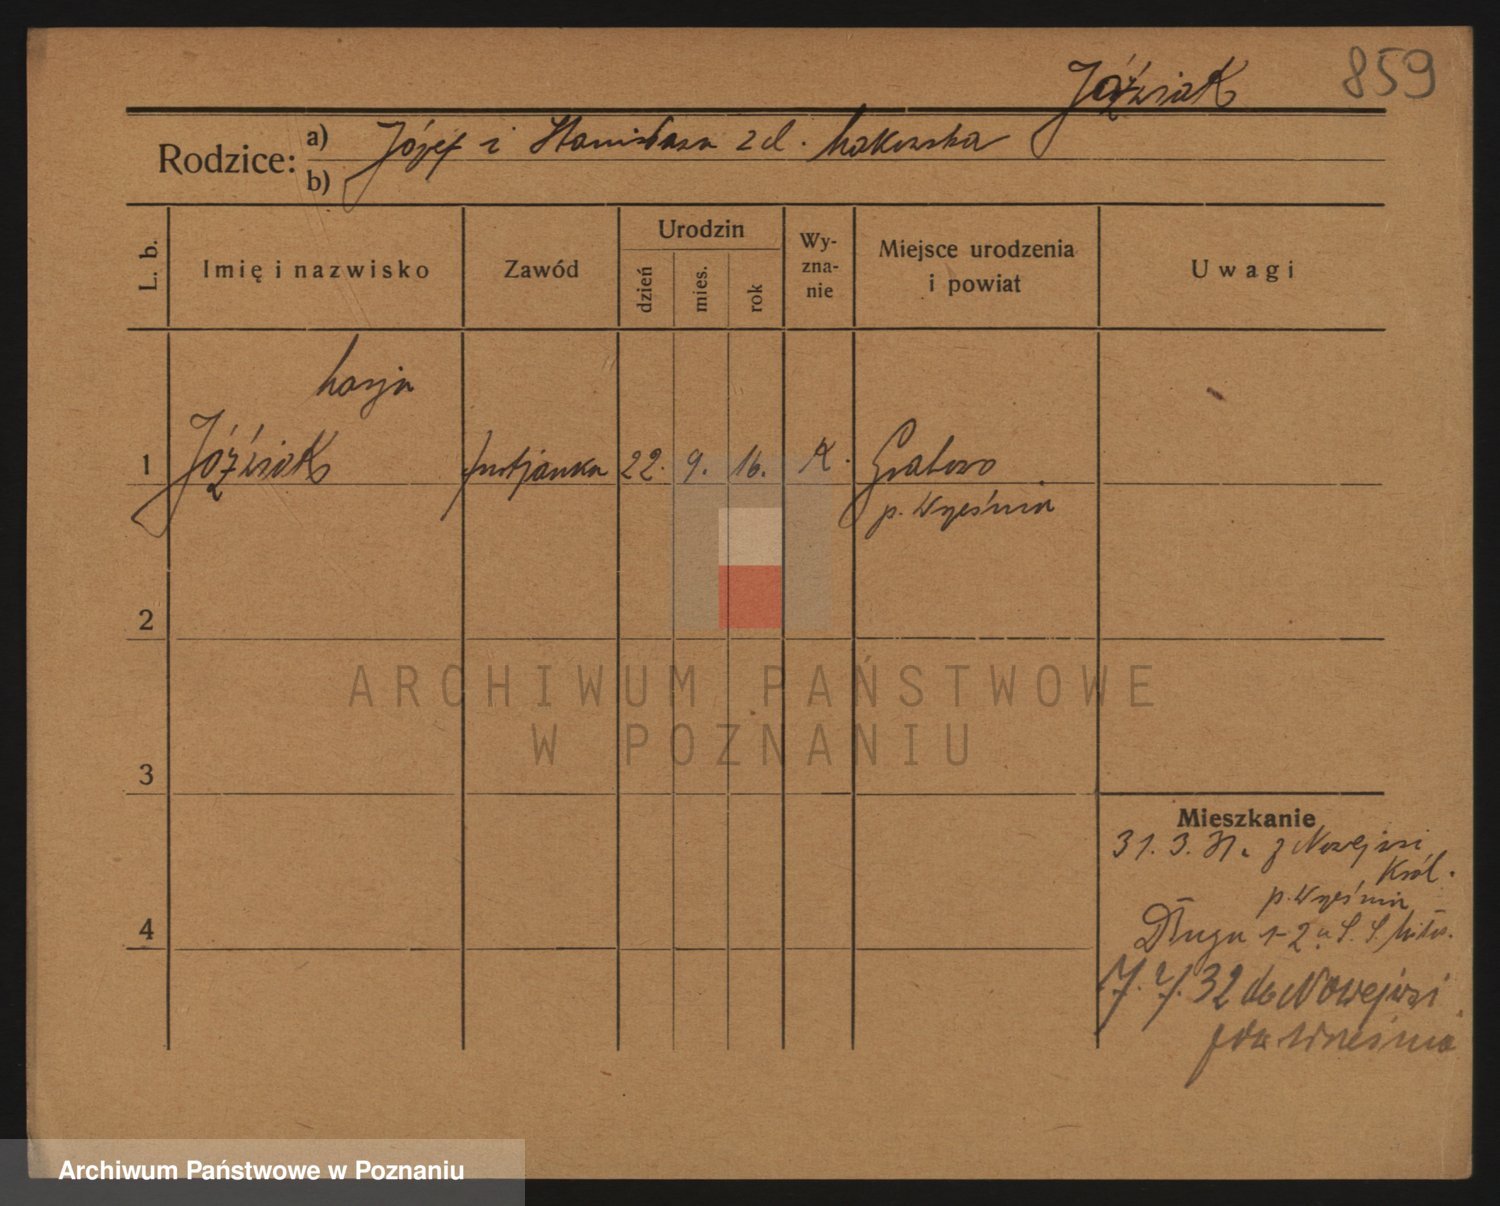 Jóźwiak 859
Rodzice: a) Józef i Stanisława z d. Makowska
b)
L. b. Imię i nazwisko Zawód Urodzin dzień mies. rok Wyzna-nie Miejsce urodzenia i powiat Uwagi
Marja
1 Jóźwiak 22. 9. 16. K. Grabowo
p. Wrześnią
2
ARCHIWUM PAŃSTWOWE
W POZNANIU
3
Mieszkanie
31. 3. 31. z Nowejwsi
Król.
p. Wrześnią
4
Długa 1-2
7. 7. 32 do Nowejwsi
Września
Archiwum Państwowe w Poznaniu